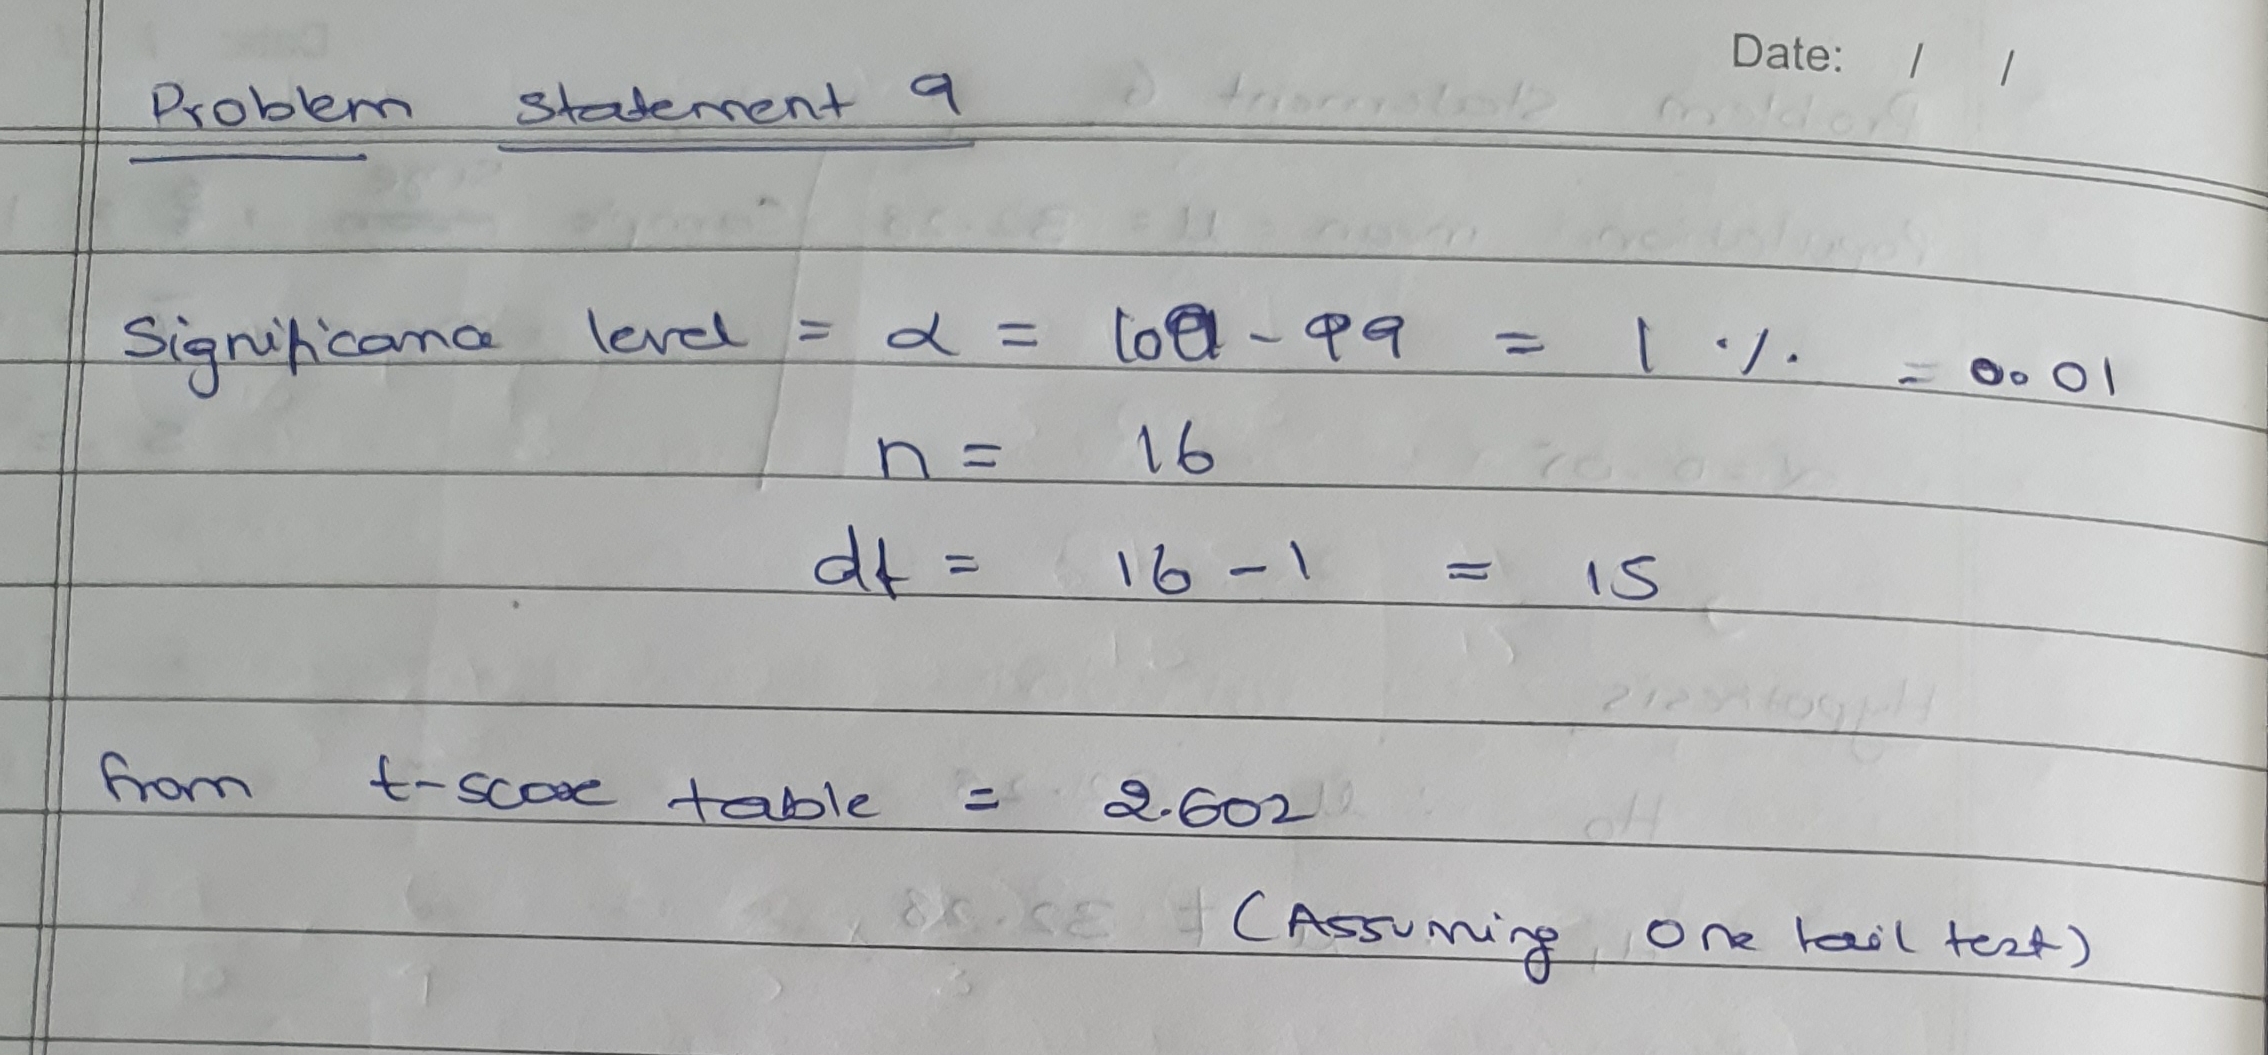 Date: / /
Problem Statement 9
Significance level = α = 100 - 99 = 1 % = 0.01
n = 16
df = 16 - 1 = 15
from t-score table = 2.602
(Assuming one tail test)